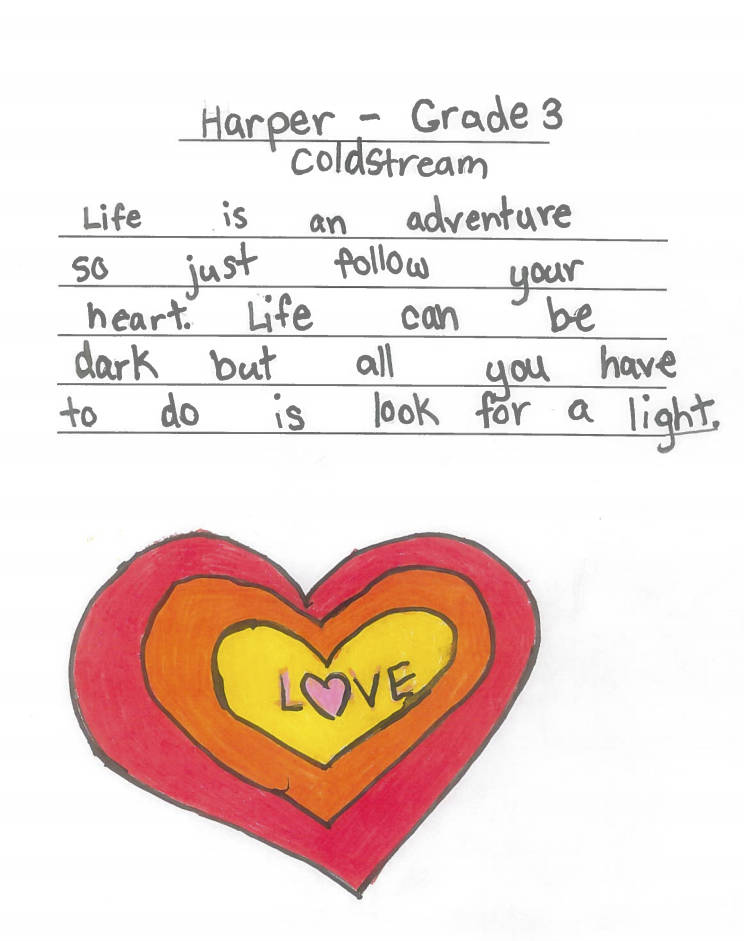 Harper - Grade 3
Coldstream
Life is an adventure
so just follow your
heart. Life can be
dark but all you have
to do is look for a light.
LOVE